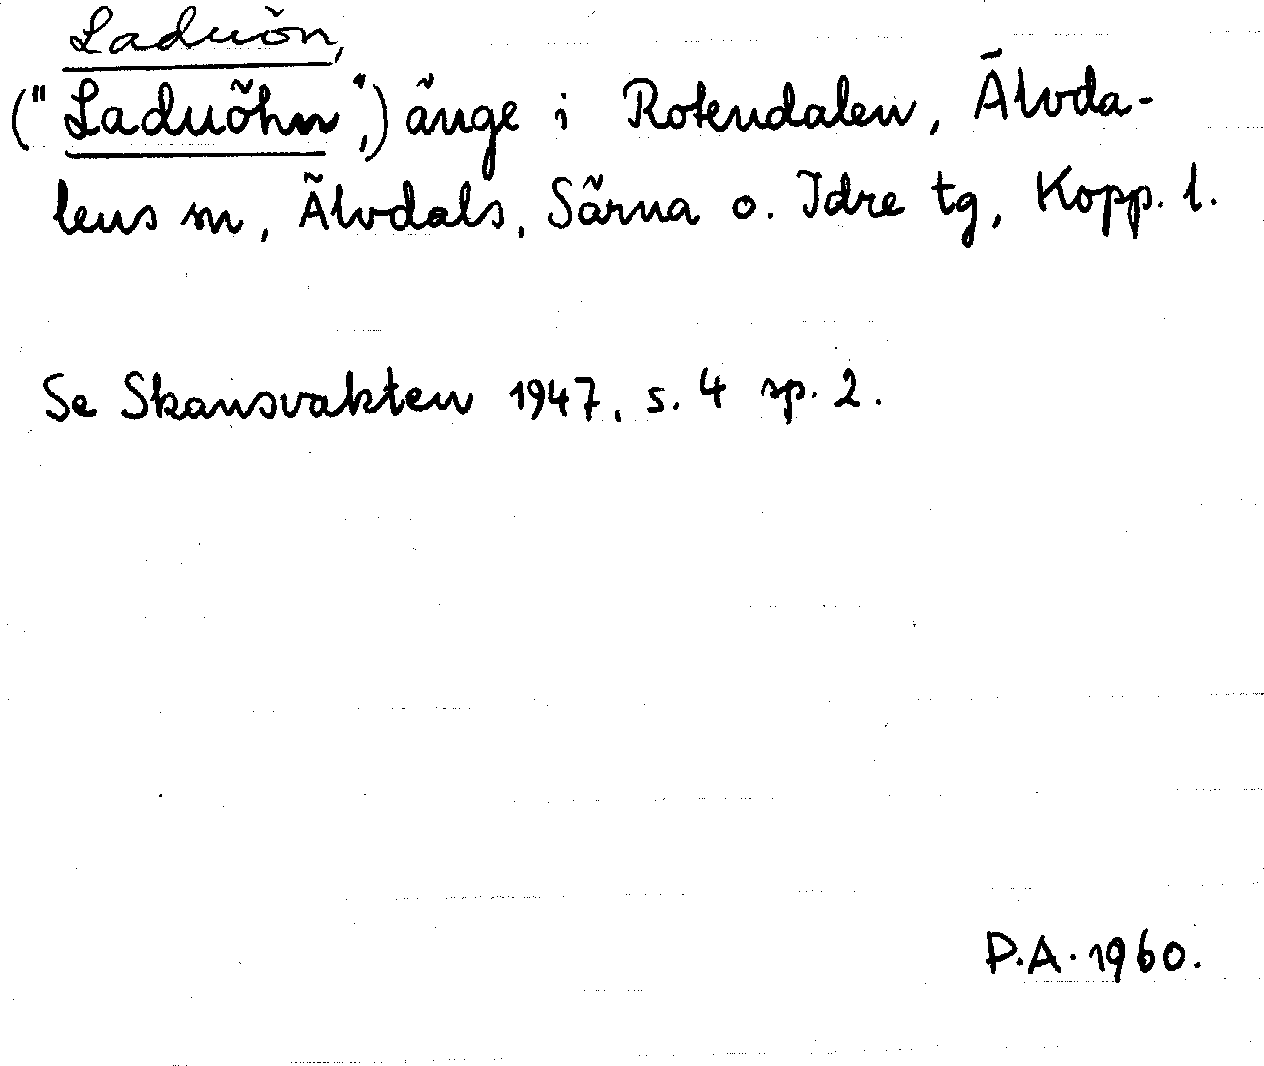 Laduön,
("Laduöhn",) änge i Rotendalen, Älvda-
lens sn, Älvdals, Särna o. Idre tg, Kopp. l.
Se Skansvakten 1947, s. 4 sp. 2.
P.A. 1960.